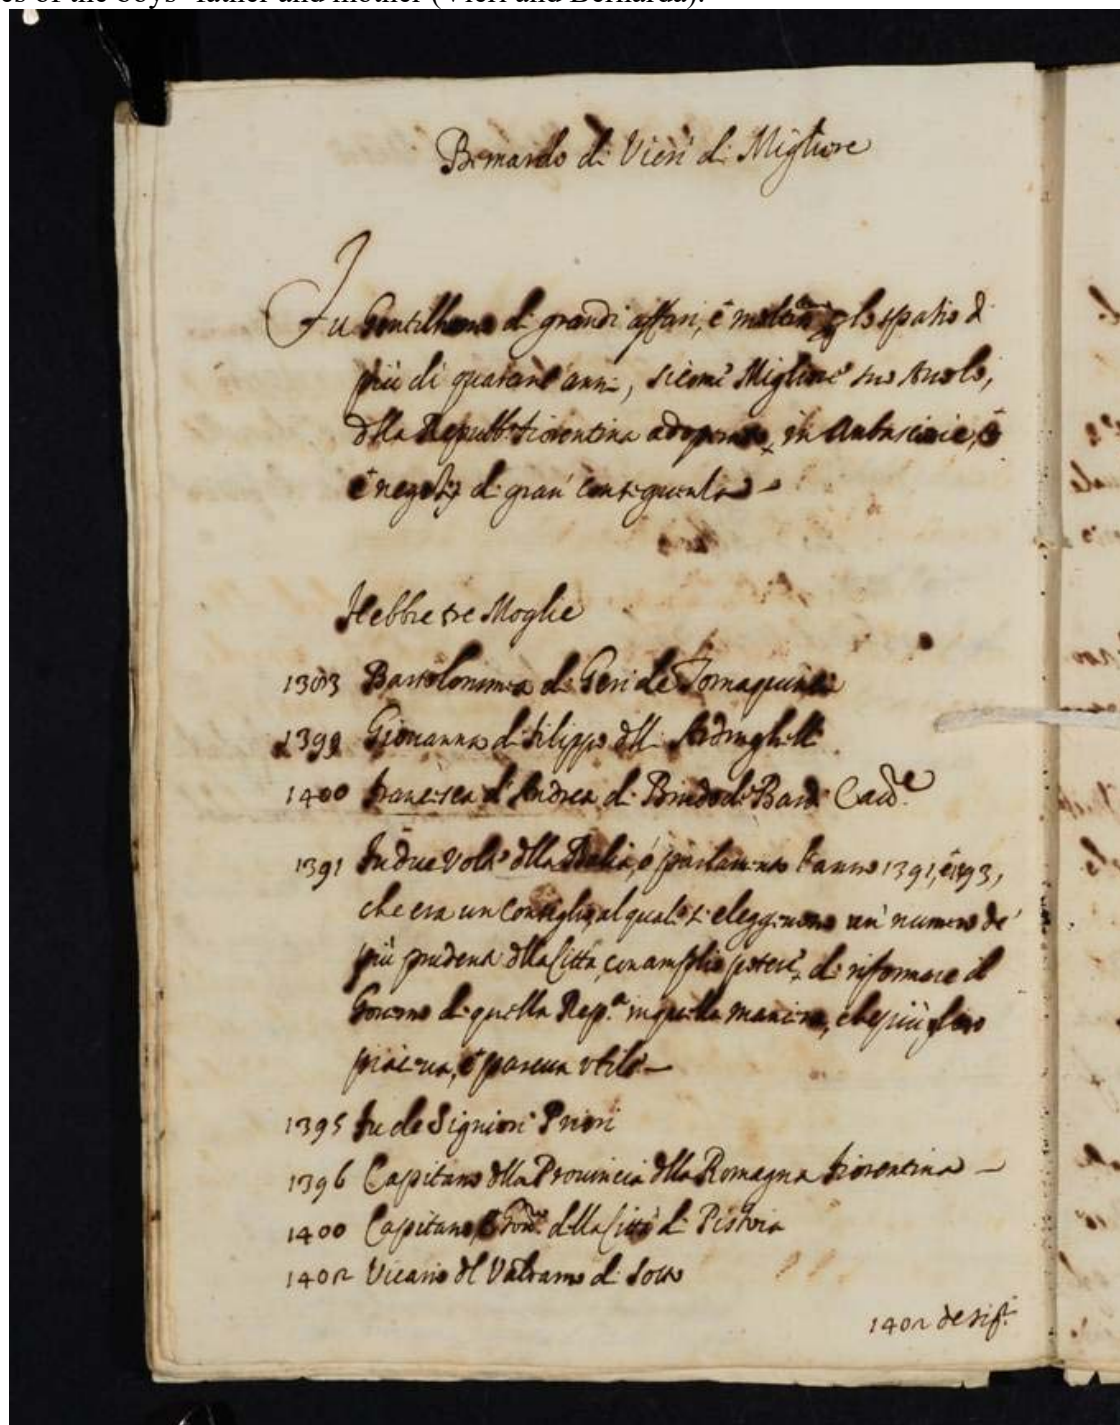 es of the boys' father and mother (Vieri and Bernarda).
Bernardo di Vieri di Migliore
Fu Gentilhuomo di grandi affari, è p lo spatio di
più di quarant' anni, sicome Migliore suo Avolo,
dlla Repubb. Fiorentina adoperato, in Ambascierie, è
è negotij di gran' conseguenza -
Hebbe tre Moglie
Bartolommea di Geri de Tornaquinci
1399 Giovanna di Filippo dlli Ardinghelli
1400 Francesca d'Andrea di Bindo di Bardi
1391 Fu due Volte dlla Balia, ó parlamento l'anno 1391, è 1393,
che era un Consiglio, al quale si eleggevano un' numero de'
più prudenti dlla Città, con amplio potere, di riformare il
Governo di quella Rep.a in quella maniera, che più gli
piaceva, è pareva utile -
1395 Fu de Signiori Priori
1396 Capitano dlla Provincia dlla Romagna Fiorentina -
1400 Capitano della Città di Pistoia
1402 Vicario dl Valdarno di Sotto
1402 de sig.